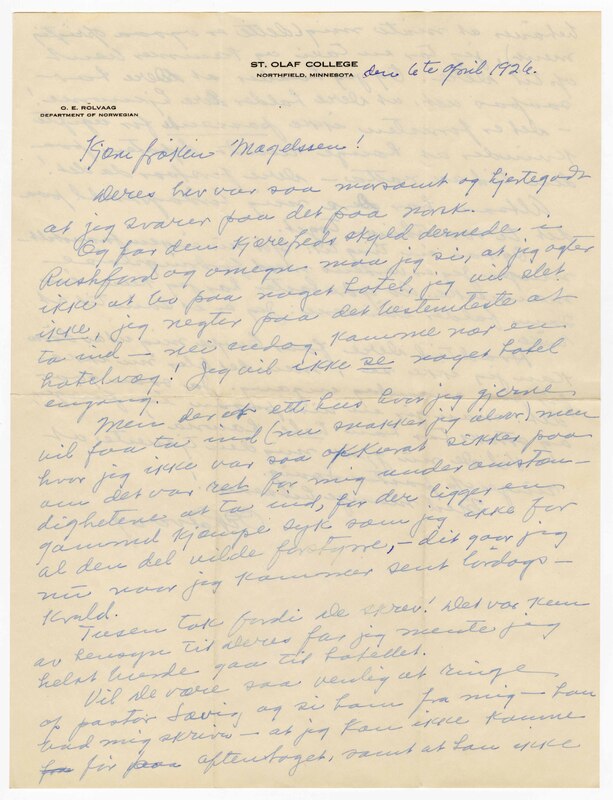 ST. OLAF COLLEGE
NORTHFIELD, MINNESOTA
den 6te April 1926.
O. E. ROLVAAG
DEPARTMENT OF NORWEGIAN
Kjære frøken Magelssen!
Deres brev var saa morsomt og hjertegodt
at jeg svarer paa det paa norsk.
Og for den kjære freds skyld dernede i
Rushford og omegn maa jeg si, at jeg agter
ikke at bo paa noget hotel, jeg vil slet
ikke, jeg negter paa det bestemteste at
ta ind — nei endog komme nær en
hotelvæg! Jeg vil ikke se noget hotel
engang.
Men der er ett hus hvor jeg gjerne
vil faa ta ind (nu snakker jeg alvor) men
hvor jeg ikke var saa akkurat sikker paa
om det var ret for mig under omstæn-
dighetene at ta ind, for der ligger en
gammel kjæmpe syk som jeg ikke for
al den del vilde forstyrre, — dit gaar jeg
nu naar jeg kommer sent lørdags-
kvæld.
Tusen tak fordi De skrev! Det var kun
av hensyn til Deres far jeg mente jeg
helst burde gaa til hotellet.
Vil De være saa venlig at ringe
op pastor Savig og si ham fra mig — han
bad mig skrive — at jeg kan ikke komme
før aftentoget, samt at han ikke